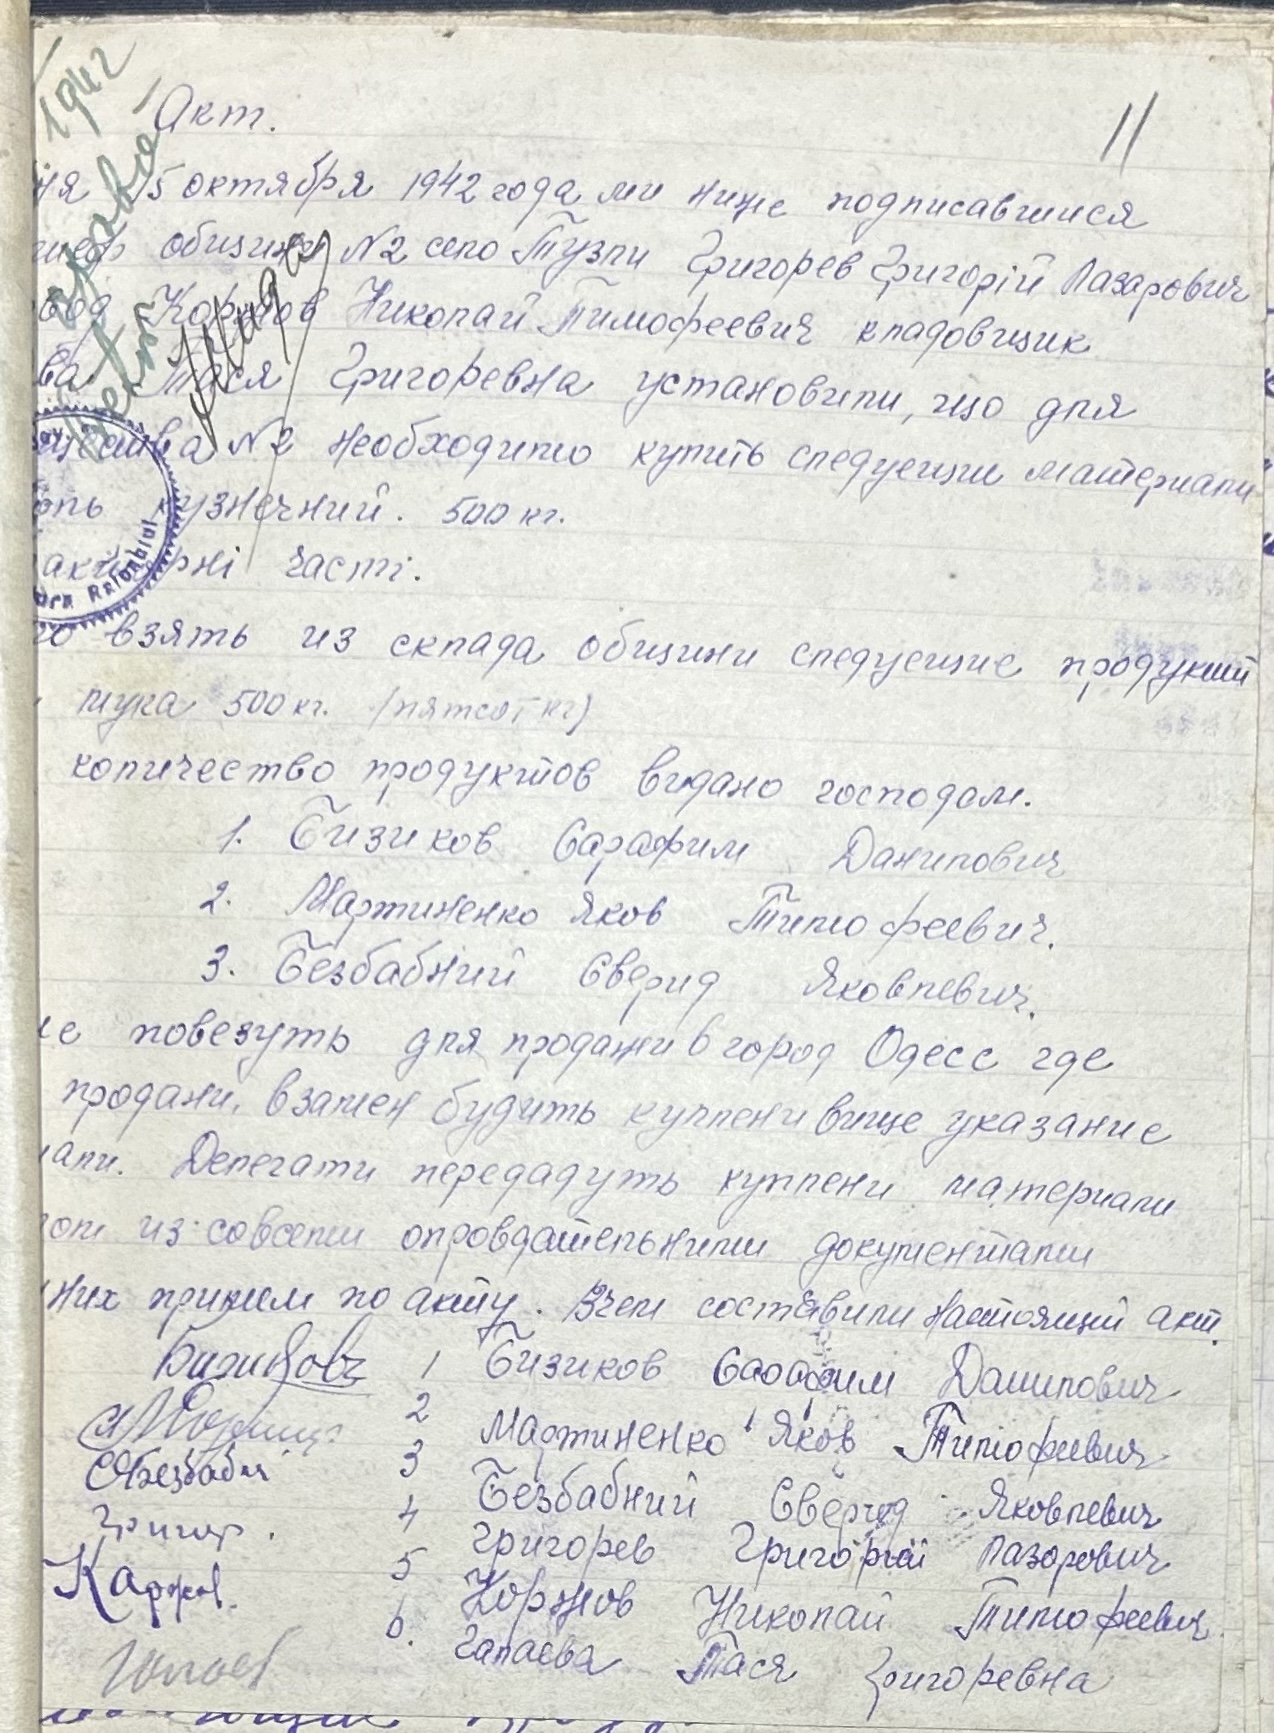 1942
11
Акт.
ня 15 октября 1942 года ми ниже подписавшиеся
общини №2 село Тузли Григорев Григорій Лазарович
вод Коржов Николай Тимофеевич кладовщик
ва Тася Григоревна установили, що для
щества №2 необходимо купить следуещии материали
оль кузнечний. 500 кг.
рні часті.
го взять из склада общини следуещие продукти
мука 500 кг. (пятсот кг)
количество продуктов видано господам.
1. Бизиков Сарафим Данилович
2. Мартиненко Яков Тимофеевич.
3. Безбабний Сверид Яковлевич.
ие повезуть для продажи в город Одесс где
продани, взамен будить куплени вище указание
иали. Делегати передадуть куплени материали
из совсеми опровдательними документами
них примем по акту. Вчем составили настоящий акт.
Бизиковъ 1 Бизиков Сарафим Данилович
2 Мартиненко Яков Тимофиевич
СЯБезбабн 3 Безбабний Сверид Яковлевич
Григор. 4 Григорев Григорій Лазарович
Каржов. 5 Коржов Николай Тимофеевич
6. Галаева Тася Григоревна
Raionului